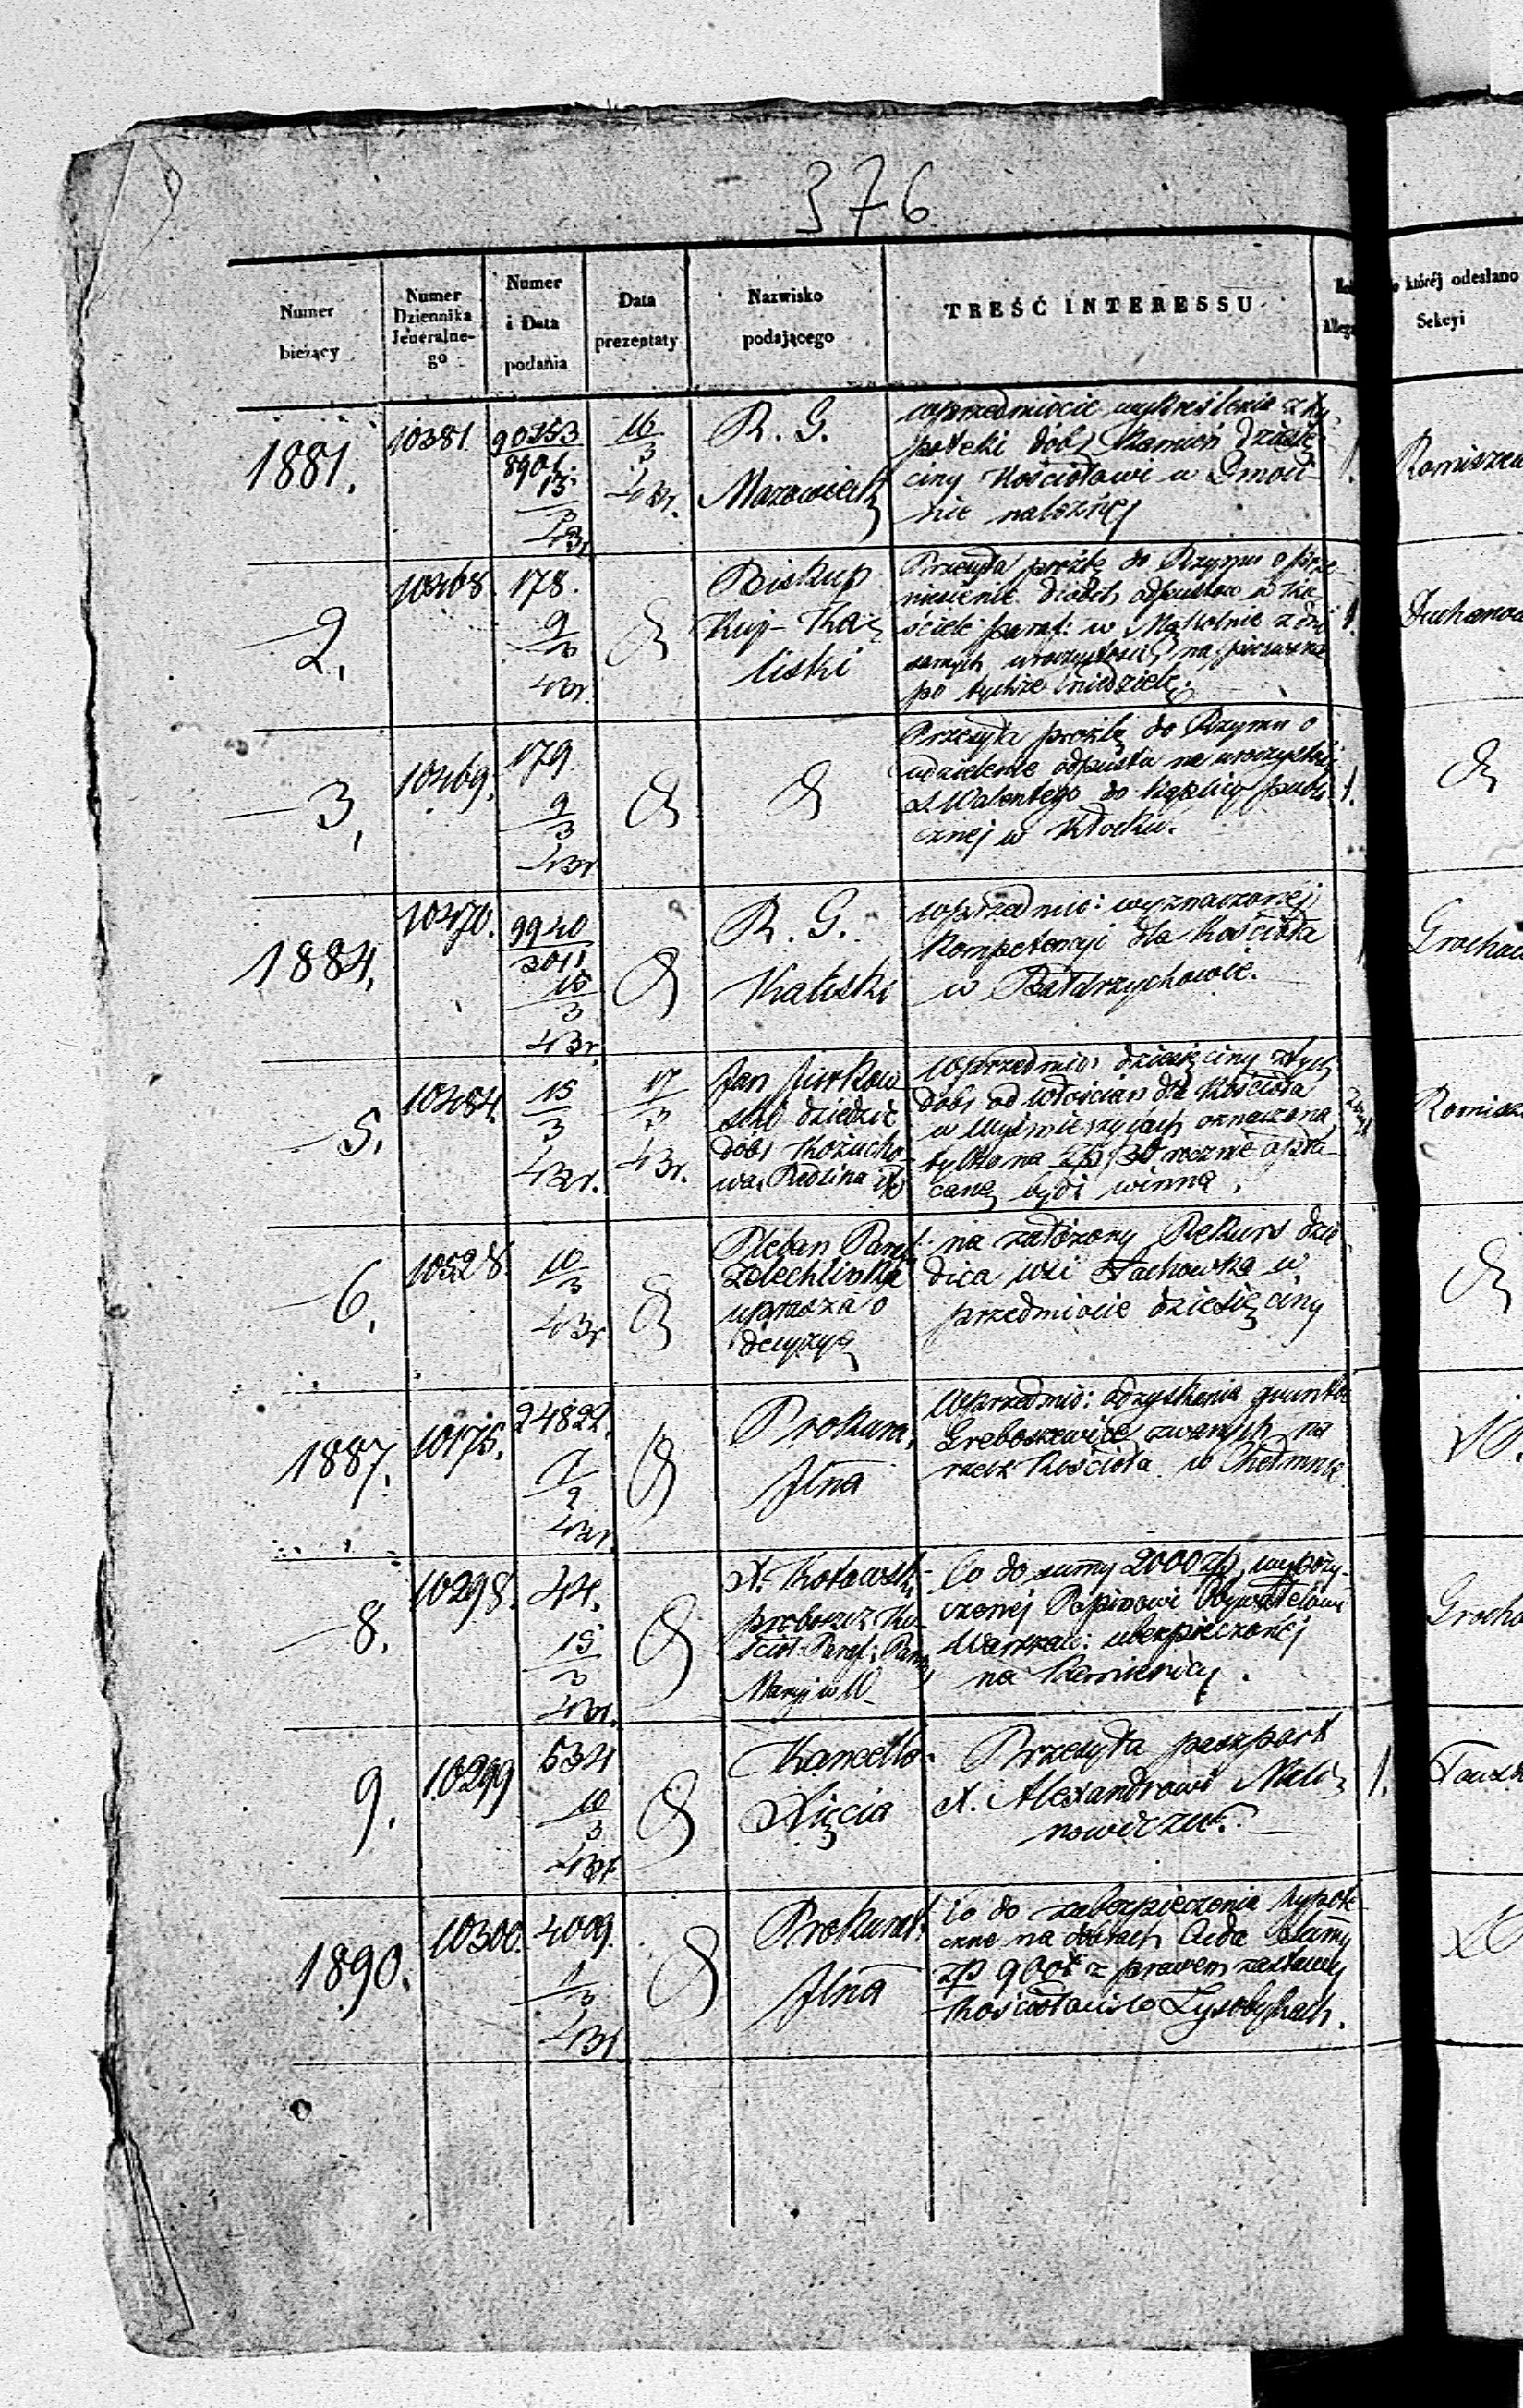 376
Numer bieżący
Numer Dziennika Jeneralnego
Numer i Data podania
Data prezentaty
Nazwisko podającego
TREŚĆ INTERESSU
której odesłano Sekcyi
1881.
10381
90353
8901.
13
3
43r.
16
3
43r.
R. G.
Mazowiecki
wprzedmiocie wykreślenia z hy-
poteki dóbr Kamień dziesię-
ciny Kościołowi w Dmoci-
nie należnéj
1.
2.
10468.
178.
9
3
43r.
Biskup
Kuj-Ka-
liski
Przesyła prośbę do Rzymu o prze-
niesienie dwóch odpustów w Ko-
ściele paraf: w Mąkolnie z dni
samych uroczystości na pierwsze
po tychże niedziele.
1.
3.
10469.
179
9
3
43r.
Przesyła prośbę do Rzymu o
udzielenie odpustu na uroczystość
S. Walentego do Kaplicy publi
cznej w Kłocku.
1.
1884.
10470.
9940
3011
15
3
43r.
R. G.
Kaliski
wprzedmio: wyznaczonéj
Kompetencyi dla Kościoła
w Bałdrzychowie.
5.
10484.
15
3
43r.
17
3
43r.
Jan Jurkow
ski dziedzic
dóbr Kożucho-
wa, Redlina itd
Wprzedmio: dziesięciny z tych
dóbr od włościan dla Kościoła
w Wyśmierzycach oznaczona
tylko na Zp 30 rocznie opła-
caną bydź winna.
6.
10528.
10
3
43r
Pleban Paraf:
Żelechlinka
uprasza o
decyzyą
na założony Rekurs dzie
dzica wsi Lachowska w
przedmiocie dziesięciny
1887.
10175.
24822.
7
2
43r.
Prokura.
Jlna
Wprzedmio: odzyskania gruntów
Greboszewice zwanych na
rzecz Kościoła w Chełmnie
8.
10298.
44.
15
3
43r.
X. Kotowski
proboszcz Ko-
ścioł. Paraf: Panny
Maryi w W
Co do summy 2000 zp. wypoży-
czonej Papinowi Obywatelowi
Warszaw: ubezpieczonéj
na Kamienicy.
9.
10299
534
10
3
43r.
Kancella.
Xięcia
Przesyła paszport
X. Alexandrowi Meli-
nowiczowi.
1.
1890.
10300.
4009.
1
3
43r
Prokurat.
Jlna
Co do zabezpieczenia hypote
czne na dobrach Ada Summy
zp 900 z prawem zastawy
Kościołowi w Łysobykach.